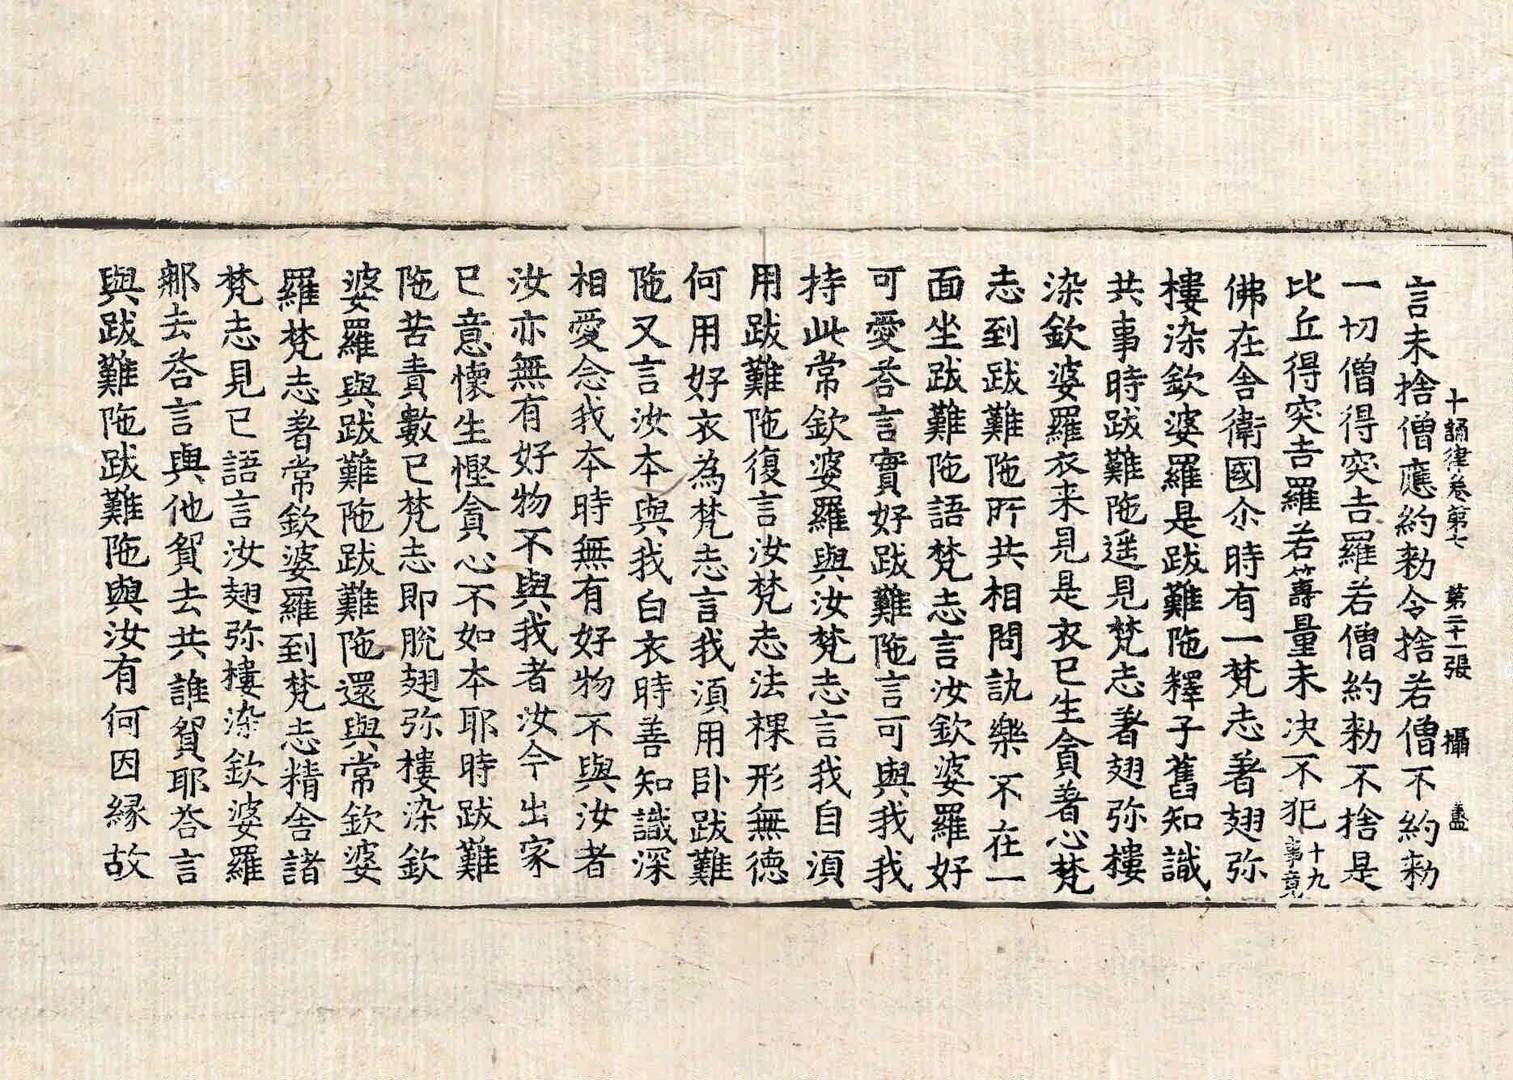 十誦律卷第七　第二十一張　攝　盖
言未捨僧應約勑令捨若僧不約勑
一切僧得突吉羅若僧約勑不捨是
比丘得突吉羅若籌量未决不犯十九事竟
佛在舍衛國尒時有一梵志著翅弥
樓染欽婆羅是跋難陁釋子舊知識
共事時跋難陁遥見梵志著翅弥樓
染欽婆羅衣来見是衣已生貪著心梵
志到跋難陁所共相問訊樂不在一
面坐跋難陁語梵志言汝欽婆羅好
可愛荅言實好跋難陁言可與我我
持此常欽婆羅與汝梵志言我自湏
用跋難陁復言汝梵志法裸形無徳
何用好衣為梵志言我湏用卧跋難
陁又言汝本與我白衣時善知識深
相愛念我本時無有好物不與汝者
汝亦無有好物不與我者汝今出家
已意懷生慳貪心不如本耶時跋難
陁苦責數已梵志即脫翅弥樓染欽
婆羅與跋難陁跋難陁還與常欽婆
羅梵志著常欽婆羅到梵志精舍諸
梵志見已語言汝翅弥樓染欽婆羅
那去荅言與他貿去共誰貿耶荅言
與跋難陁跋難陁與汝有何因縁故